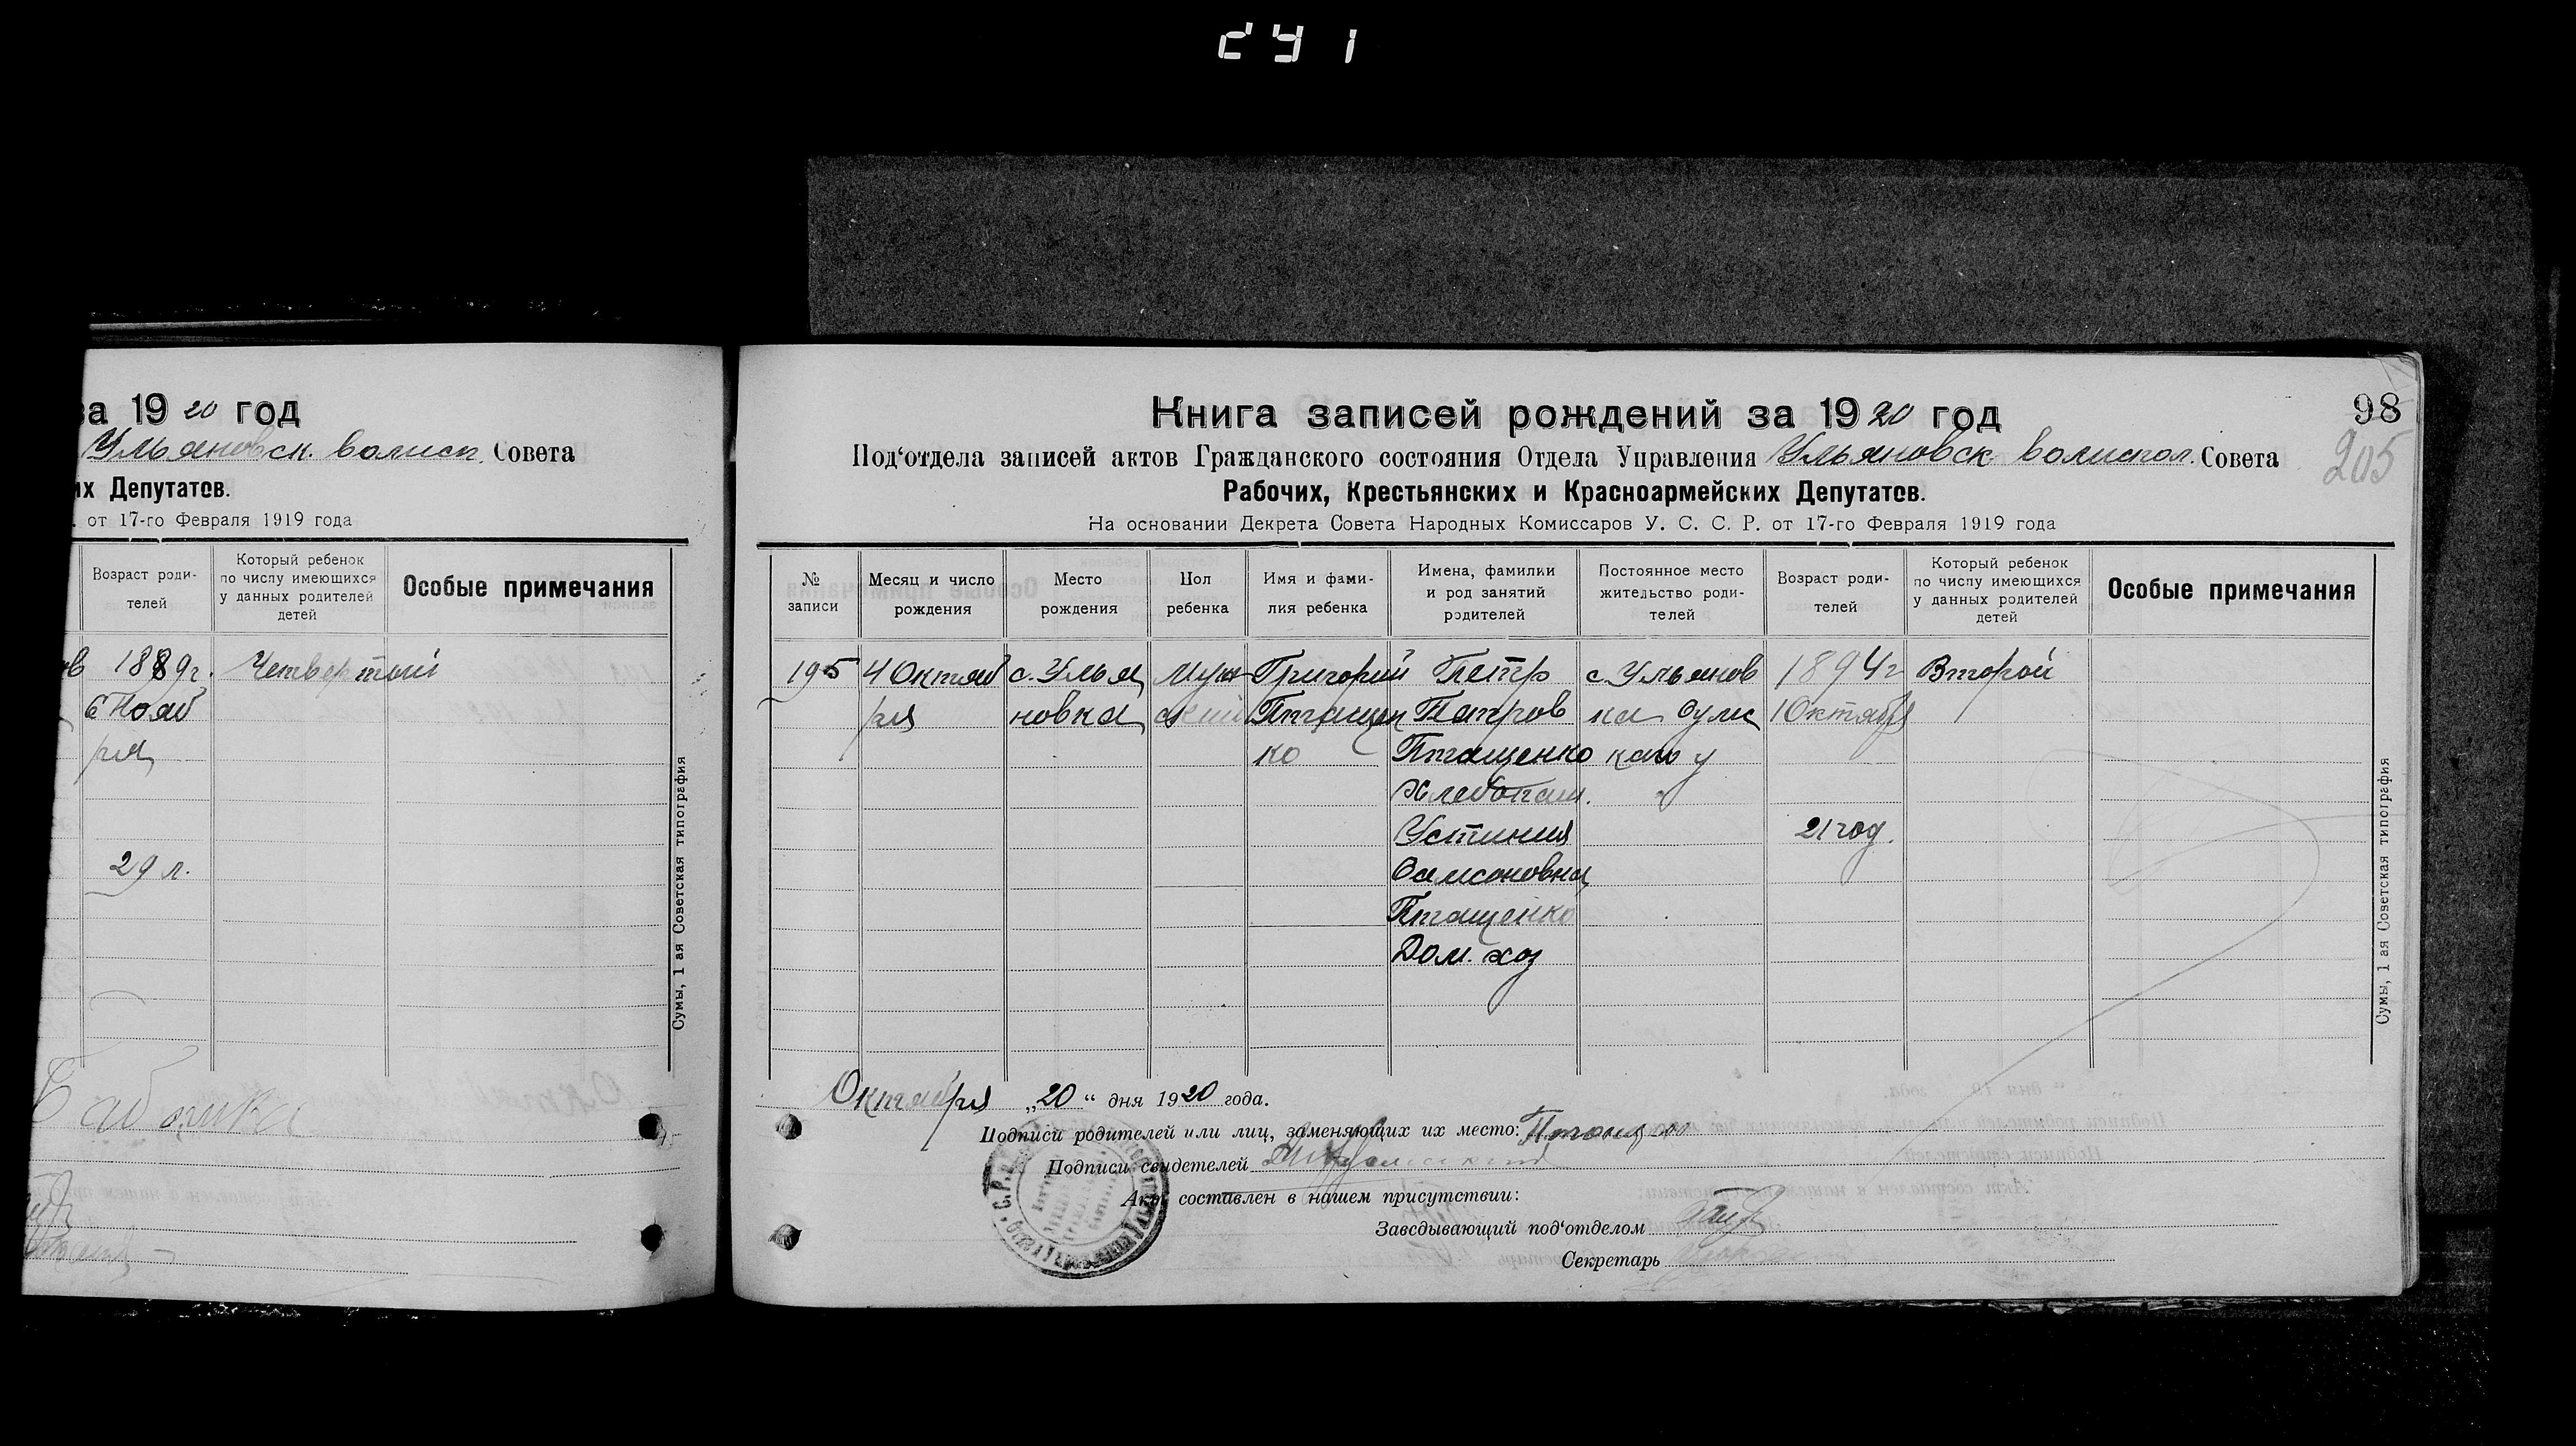 241
за 1920 год
Ульяновск. волисп. Совета
их Депутатов.
. от 17-го Февраля 1919 года
Возраст роди-
телей
Который ребенок
по числу имеющихся
у данных родителей
детей
Особые примечания
1889г.
6 Нояб
ря
29 л.
Четвертый
Сумы, 1 ая Советская типография
98
205
Книга записей рождений за 1920 год
Под‘отдела записей актов Гражданского состояния Отдела Управления Ульяновск волиспол. Совета
Рабочих, Крестьянских и Красноармейских Депутатов.
На основании Декрета Совета Народных Комиссаров У. С. С. Р. от 17-го Февраля 1919 года
№
записи
Месяц и число
рождения
Место
рождения
Пол
ребенка
Имя и фами-
лия ребенка
Имена, фамилии
и род занятий
родителей
Постоянное место
жительство роди-
телей
Возраст роди-
телей
Который ребенок
по числу имеющихся
у данных родителей
детей
Особые примечания
195
4 Октяб
ря
с. Улья
новка
Муж
ский
Григорий
Птащен
ко
Петр
Петров
Птащенко
Хлебопаш.
Устиния
Самсоновна
Птащенко
Дом. хоз
с Ульянов
ка Сумс
каго у
1894г
1 Октября
21 год.
Второй
Сумы, 1 ая Советская типография
Октября „20“ дня 1920 года.
Подписи родителей или лиц, заменяющих их место:
Подписи свидетелей
Акт составлен в нашем присутствии:
Заведывающий под‘отделом
Секретарь